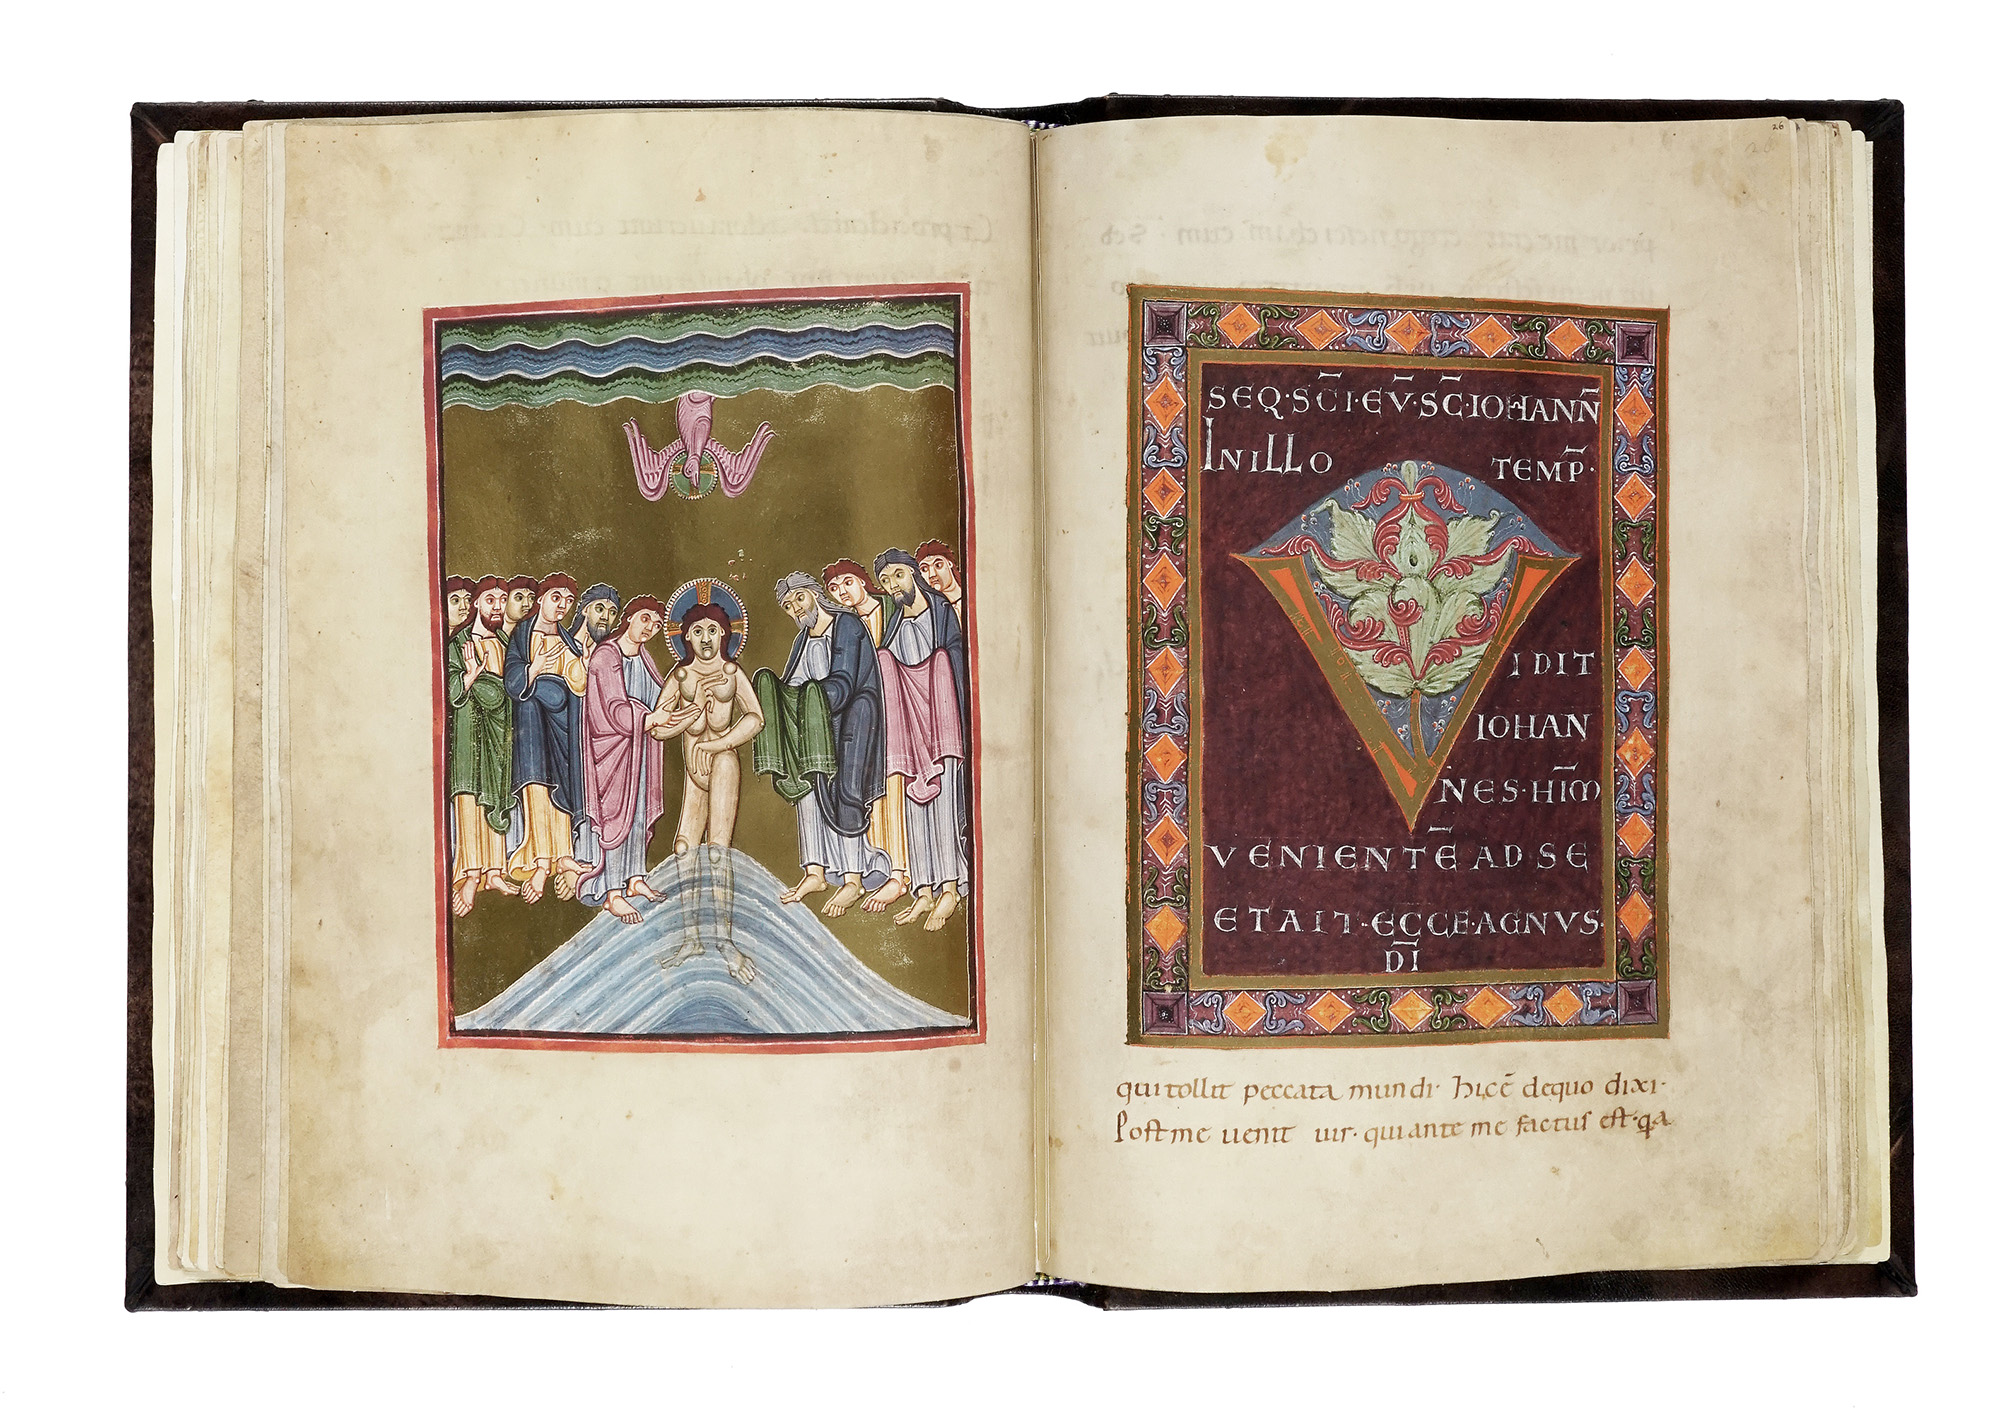 26
SEQ·SC̅I·EV̅·SC̅·IOHANN̅
IN ILLO TEMP̅·
V
IDIT
IOHAN
NES·HI̅M
VENIENTE̅ AD SE
ET AIT·ECCE·AGNVS·
D̅I
qui tollit peccata mundi· hic e̅ de quo dixi·
Post me uenit uir· qui ante me factus est· q̅a